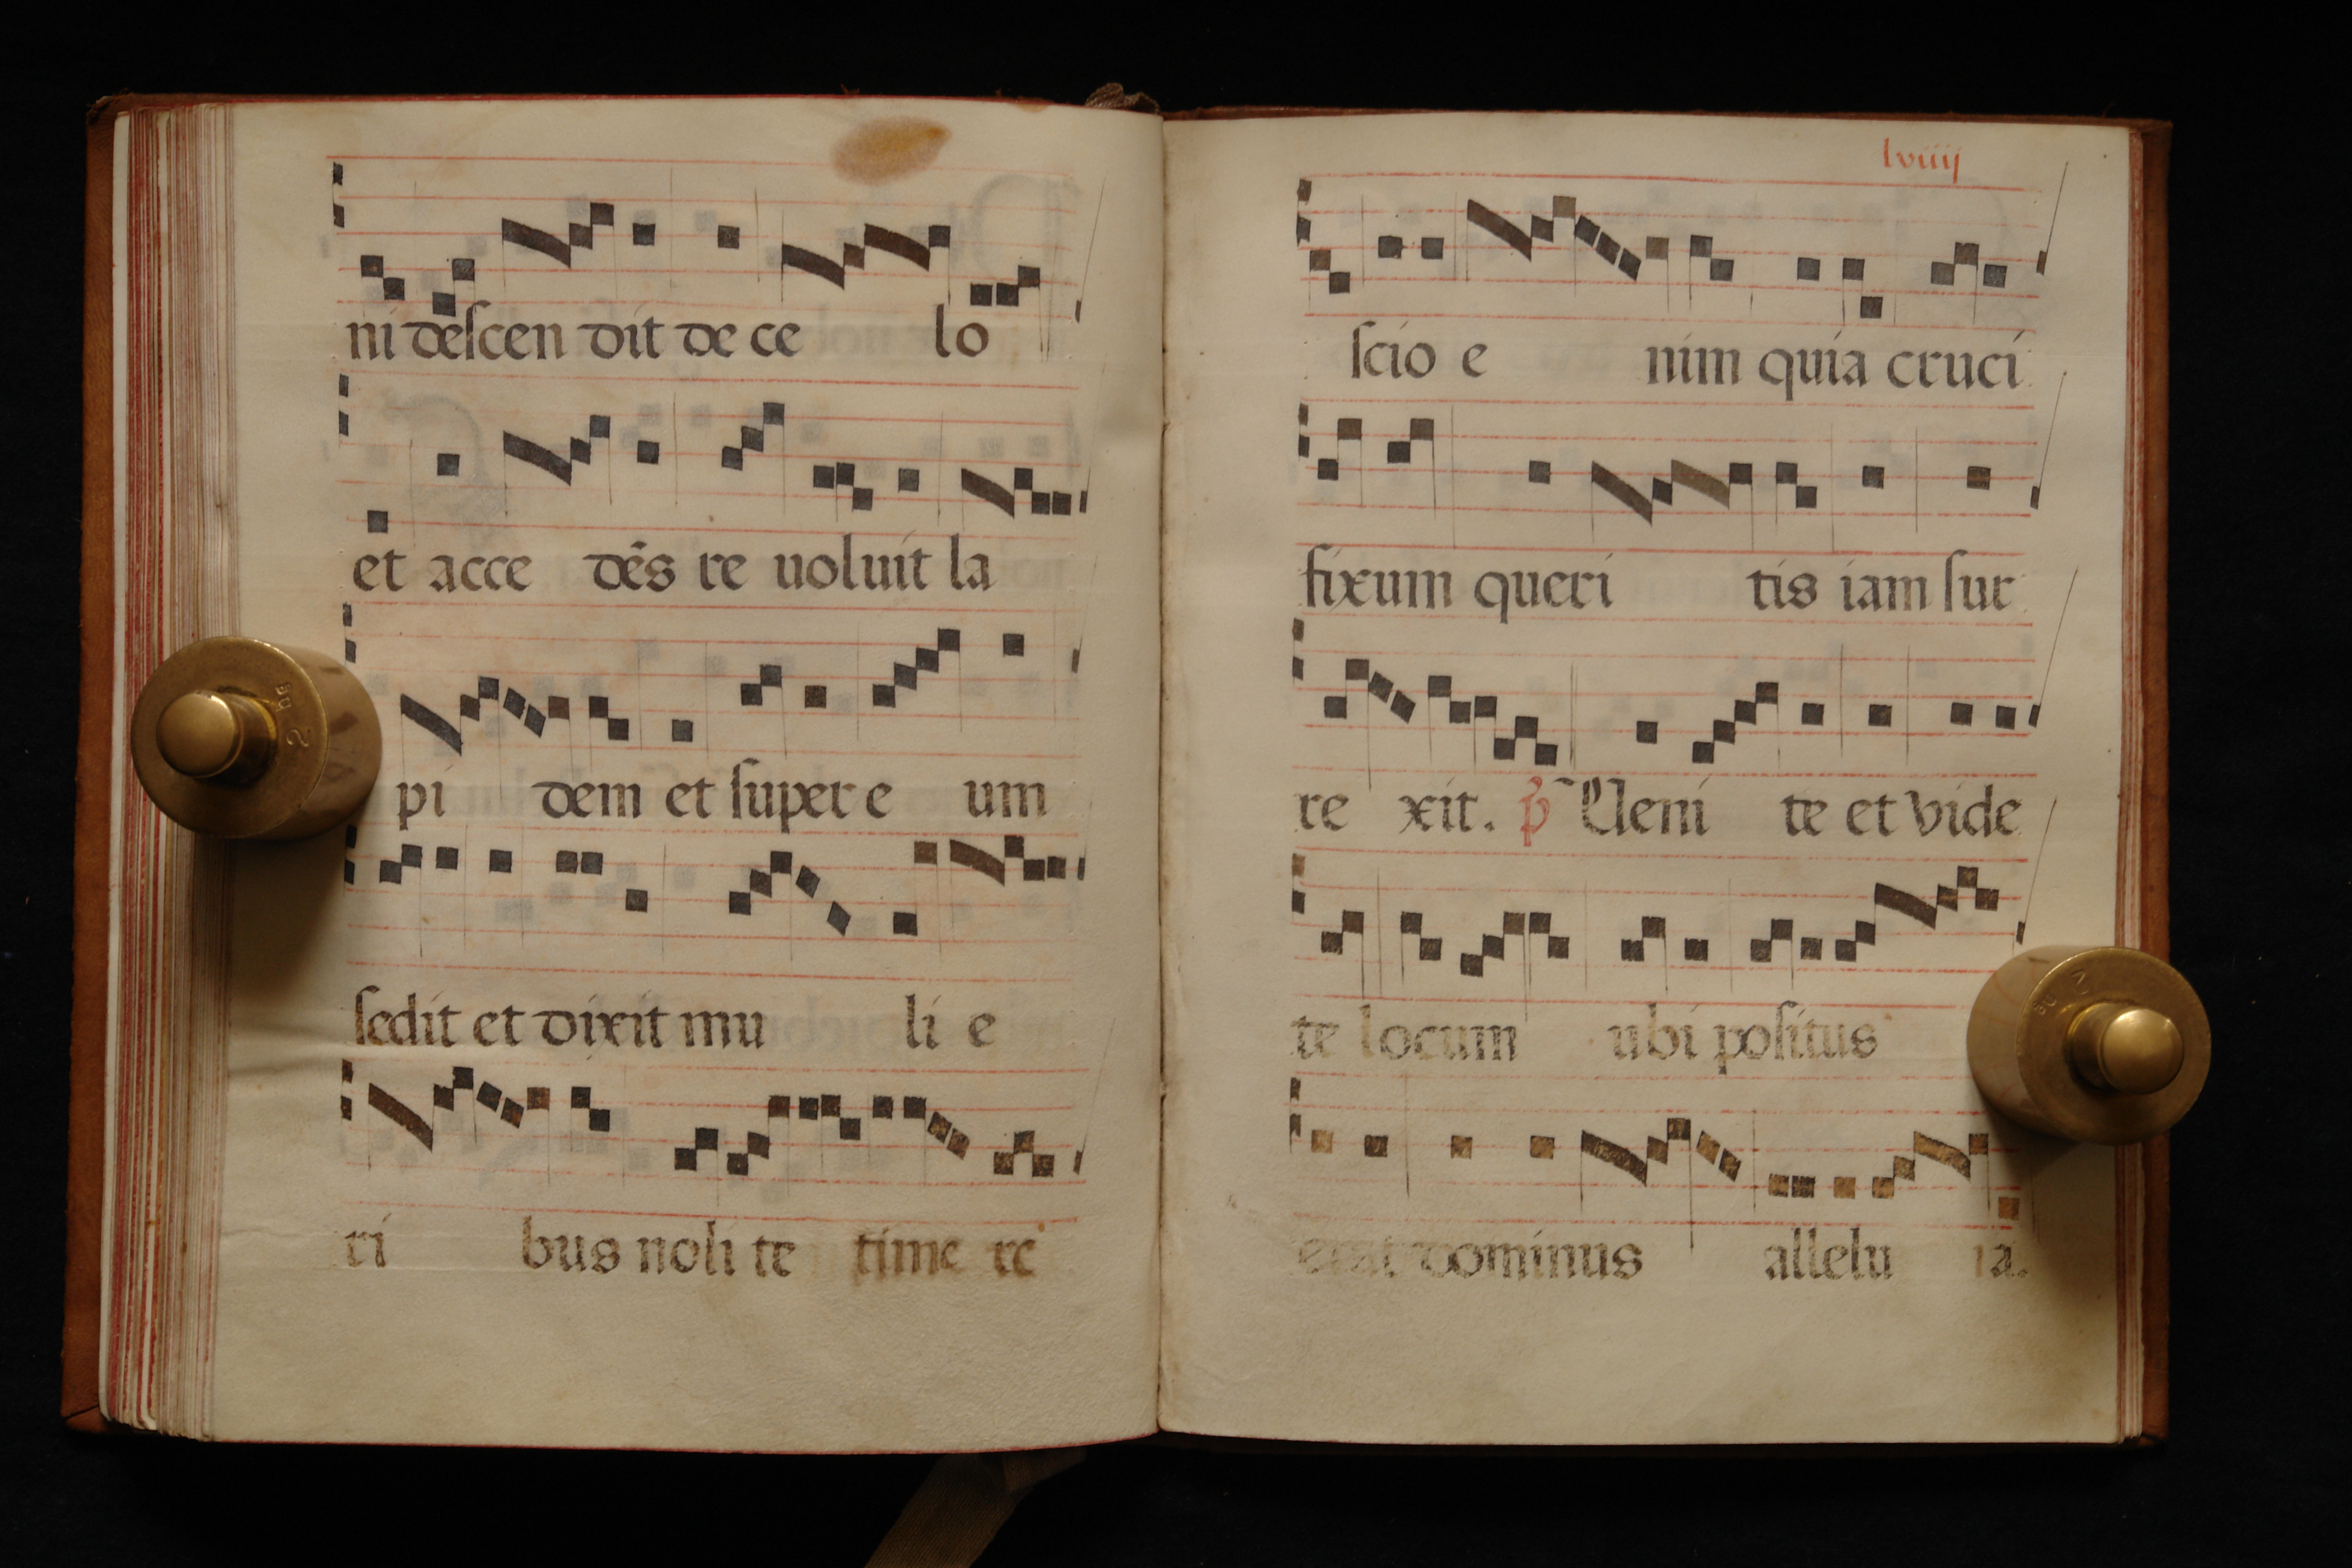 ni deſcen dit de ce lo
et acce dēs re uoluit la
pi dem et ſuper e um
ſedit et dixit mu li e
ri bus noli te time re
lviiij
ſcio e nim quia cruci
fixum queri tis iam ſur
re xit. p̄ Ueni te et vide
te locum ubi poſitus
erat dominus allelu ia.